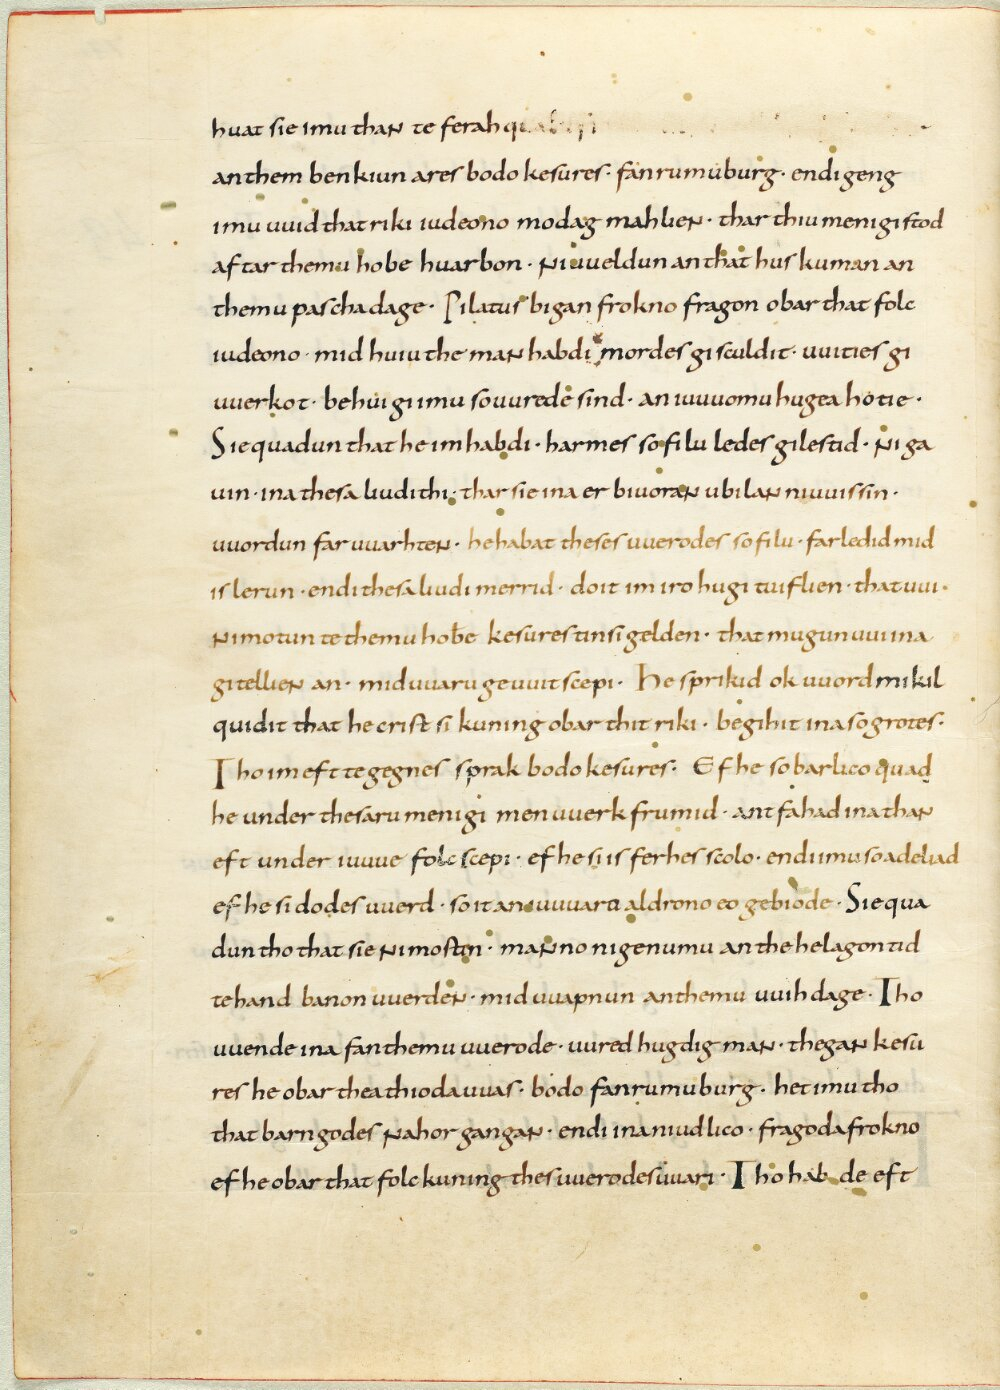 huat sie imu than te ferah
an them benkiun ares bodo kesures · fan rumuburg · endi geng
imu uuid that riki iudeono modag mahlien · thar thiu menigi stod
aftar themu hobe huarbon · ni uueldun an that hus kuman an
themu paschadage · Pilatus bigan frokno fragon obar that folc
iudeono · mid huiu the man habdi mordes gisculdit · uuities gi
uuerkot · be hui gi imu so uurede sind · an iuuuomu hugea hotie ·
Sie quadun that he im habdi · harmes so filu ledes gilestid · ni ga
uin · ina thesa liudi thi · thar sie ina er biuoran ubilan ni uuissin ·
uuordun faruuarhten · he habat theses uuerodes so filu · farledid mid
is lerun · endi thesa liudi merrid · doit im iro hugi tuiflien · that uui ·
ni motun te themu hoƀe kesures tinsi gelden · that mugun uui ina
gitellien an · mid uuaru geuuitscepi · He sprikid ok uuord mikil
quidit that he crist si kuning obar thit riki · begihit ina so grotes ·
Tho im eft tegegnes sprak bodo kesures · Ef he so barlico quad
he under thesaru menigi menuuerk frumid · antfahad ina than
eft under iuuue folcscepi · ef he si is ferhes scolo · endi imu so adeliad
ef he si dodes uuerd · so it an iuuuara aldrono eo gebiode · Sie qua
dun tho that sie ni mostin · manno nigenumu an the helagon tid
te hand banon uuerden · mid uuapnun an themu uuihdage · Tho
uuende ina fan themu uuerode · uuredhugdig man · thegan kesu
res he obar thea thioda uuas · bodo fan rumuburg · het imu tho
that barn godes nahor gangan · endi ina niudlico · fragoda frokno
ef he obar that folc kuning thes uuerodes uuari · Tho habde eft